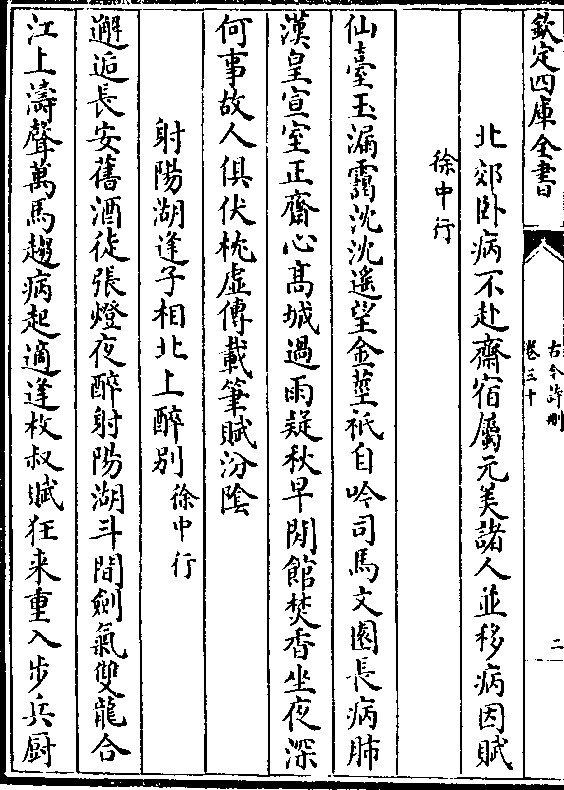 欽定四庫全書
古今詩刪
卷三十
二
北郊卧病不赴齋宿屬元美諸人並移病因賦
徐中行
仙臺玉漏靄沈沈遙望金莖秪自吟司馬文園長病肺
漢皇宣室正齋心髙城過雨疑秋早閒館焚香坐夜深
何事故人俱伏枕虛傳載筆賦汾隂
射陽湖逢子相北上醉别徐中行
邂逅長安舊酒徒張燈夜醉射陽湖斗間劍氣雙龍合
江上濤聲萬馬趨病起適逢枚叔賦狂来重入步兵厨